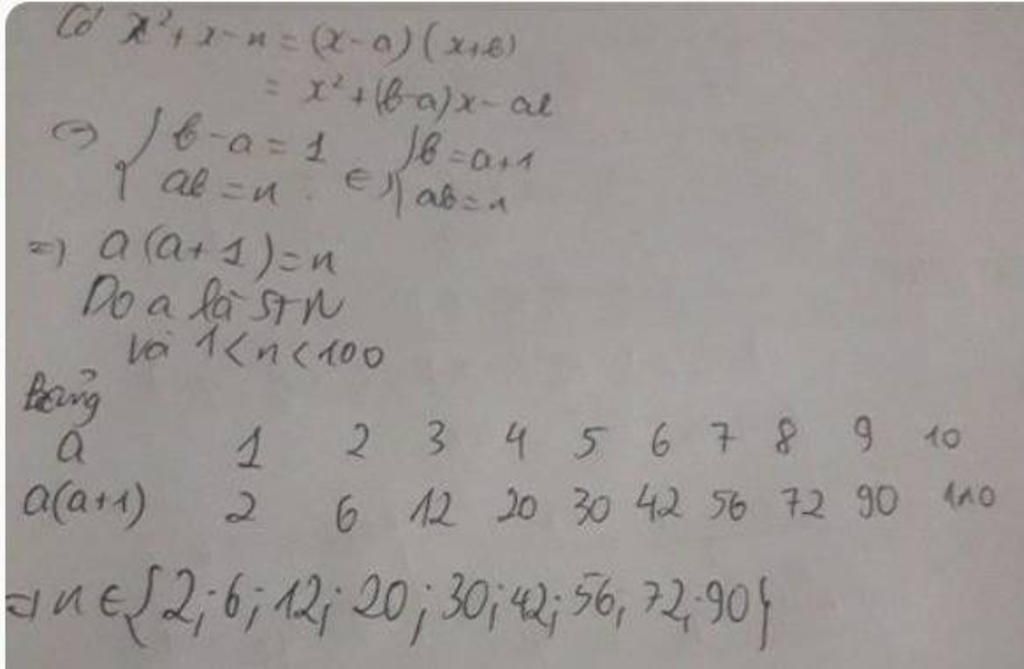 Có x² + x - n = (x - a)(x + b)
= x² + (b-a)x - ab
<=> { b - a = 1 <=> { b = a + 1
{ ab = n { ab = n
=> a(a + 1) = n
Do a là STN
và 1 < n < 100
Bảng
a 1 2 3 4 5 6 7 8 9 10
a(a+1) 2 6 12 20 30 42 56 72 90 110
=> n ∈ {2; 6; 12; 20; 30; 42; 56, 72; 90}